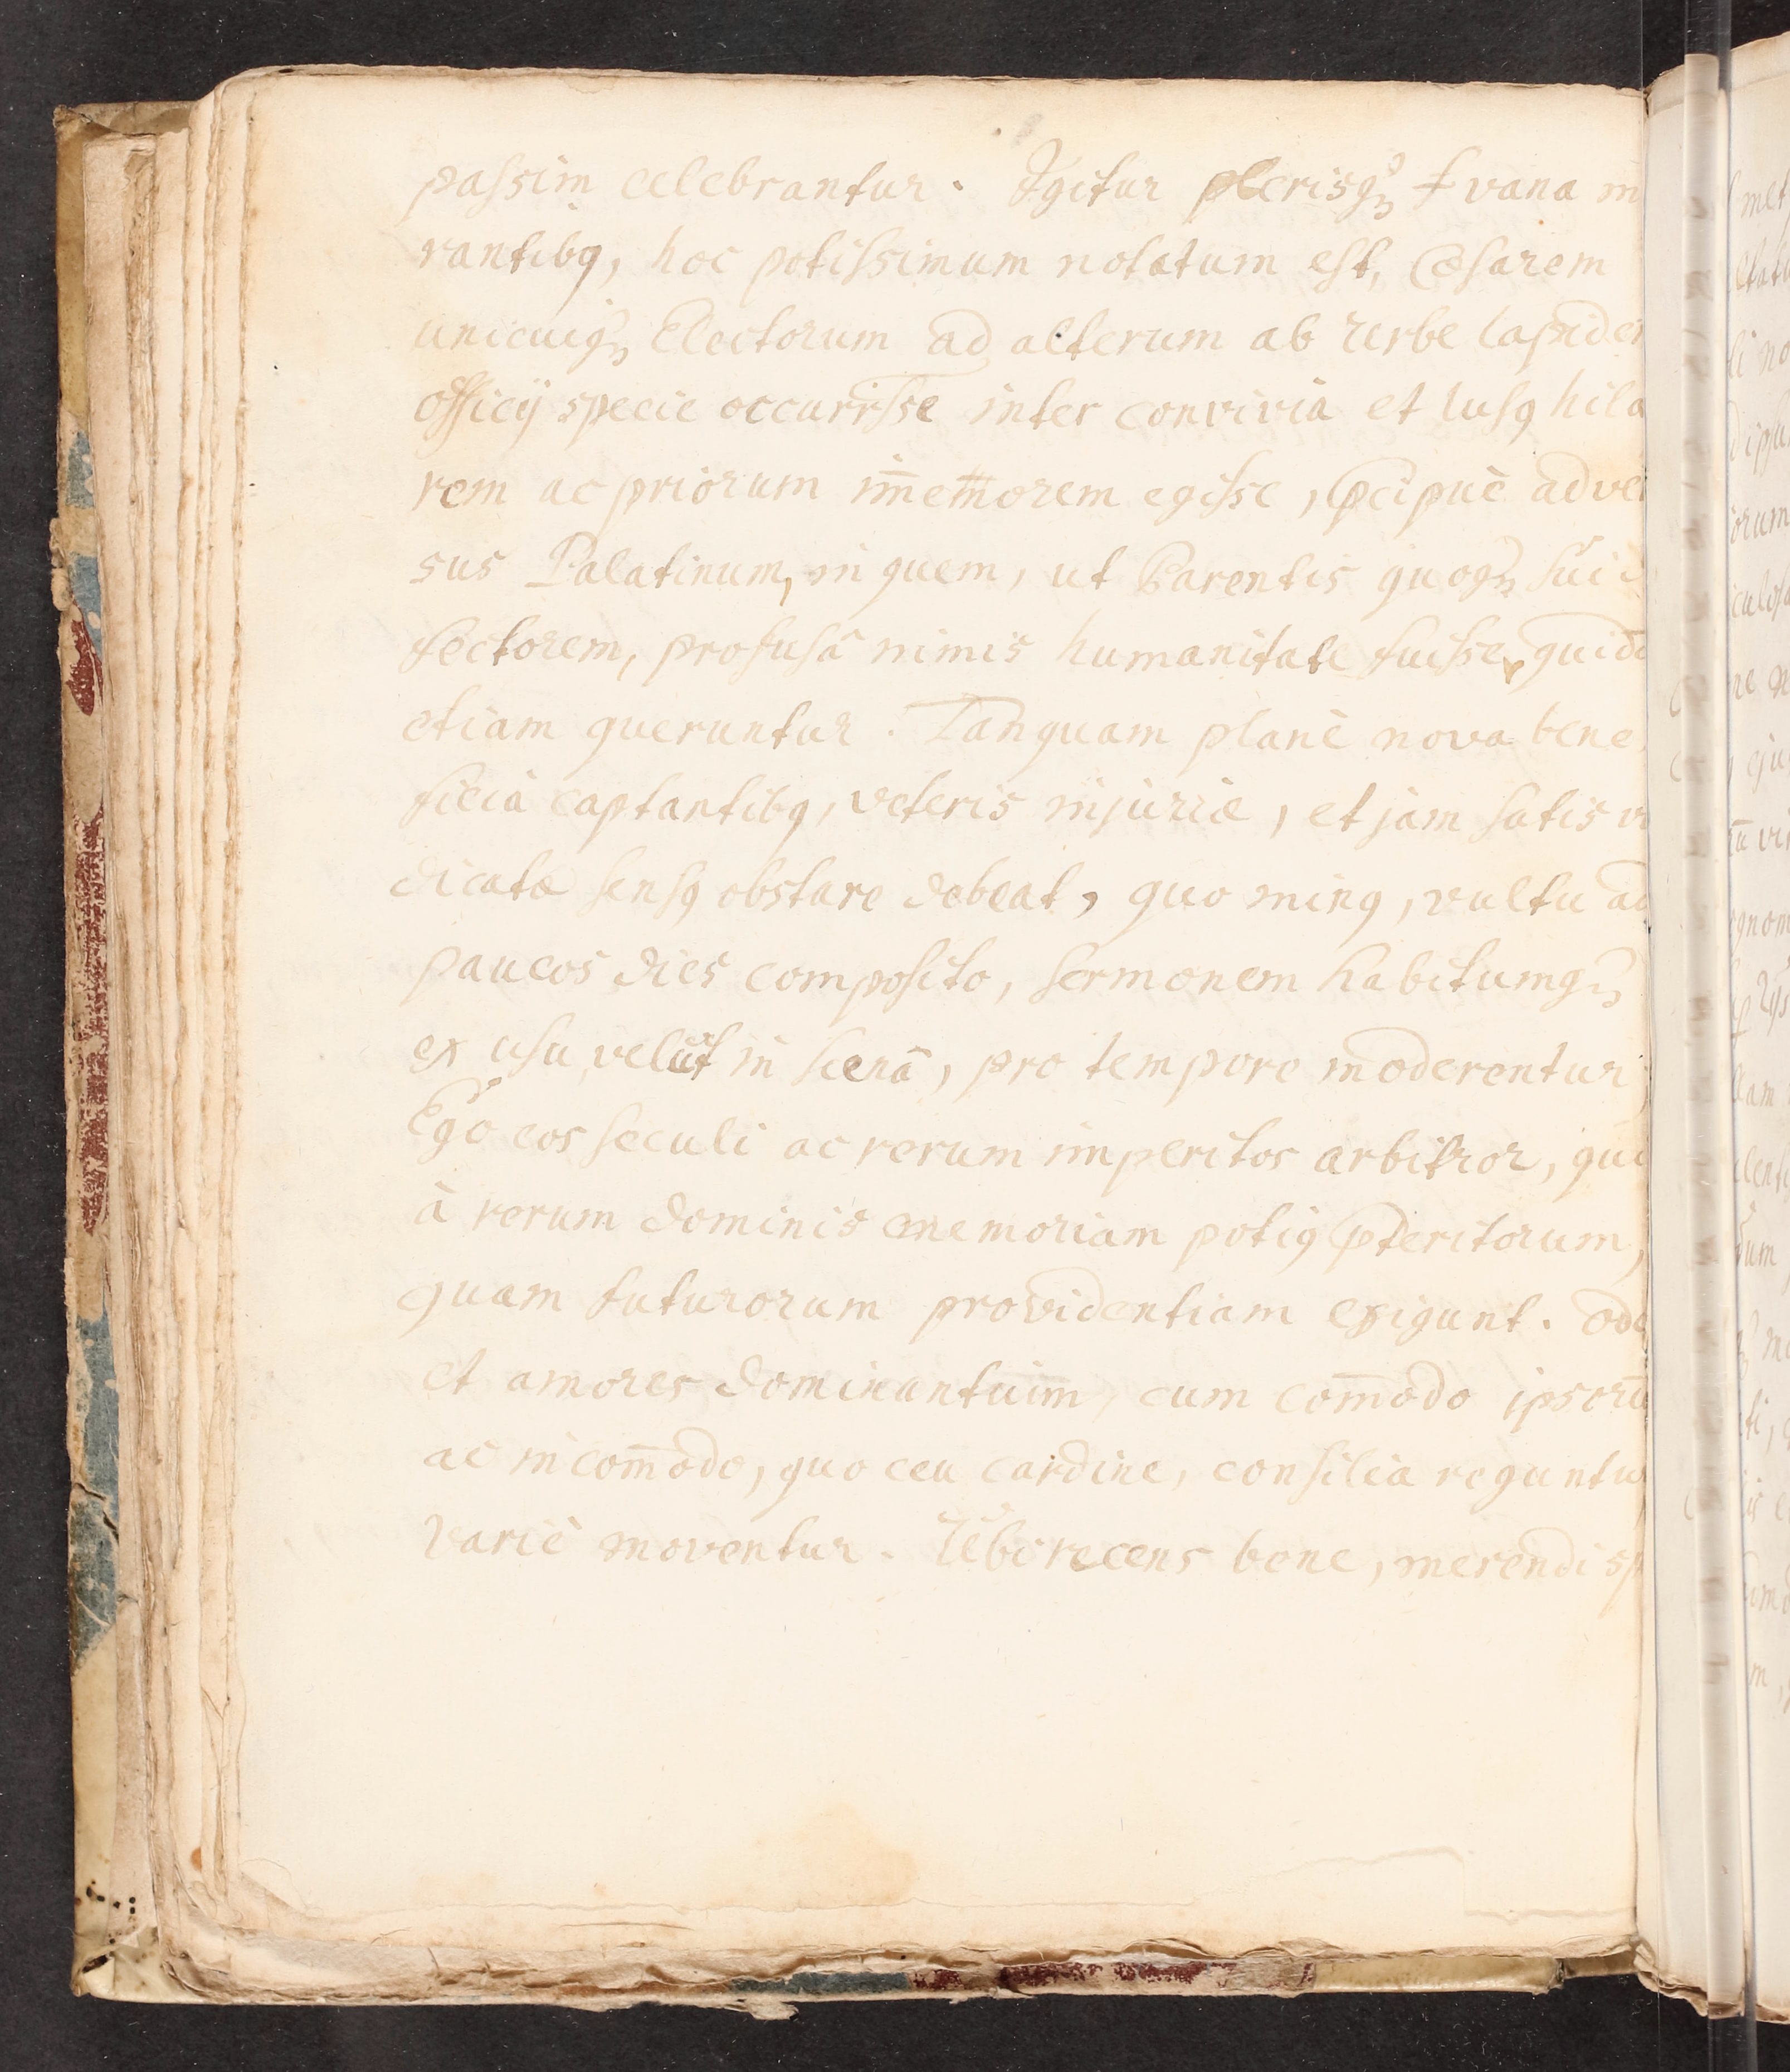 passim celebrantur. Igitur plerisq; & vana mi
rantibq, hoc potissimum notatum est, Cæsarem
unicuiq; Electorum ad alterum ab urbe lapidem
officij specie occurrisse inter convivia et lusq hila
rem ac priorum im̄emorem egisse, p̄cipuè adver
sus Palatinum, in quem, ut Parentis quoq; sui
sectorem, profusâ nimis humanitate fuisse, quidā
etiam queruntur. Tanquam planè nova bene
ficia captantibq, veteris injuriæ, et jam satis vi
dicatæ sensq obstare debeat, quo minq, vultu ad
paucos dies composito, sermonem habitumq;
ex usu, velut in scenâ, pro tempore moderentur,
Ego eos seculi ac rerum imperitos arbitror, qui
à rerum dominis memoriam potiq p̄teritorum,
quam futurorum providentiam exigunt. odi
et amores dominantium, cum com̄odo ipsorū
ac incom̄odo, quo ceu cardine, consilia reguntur
variè moventur. Ubi recens bene, merendi sp